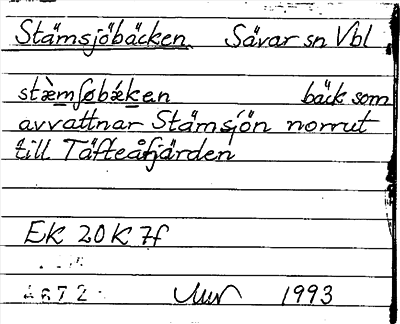 Stämsjöbäcken. Sävar sn Vbl
bäck som
avvattnar Stämsjön norrut
till Täfteåfjärden
EK 20K 7f
1993